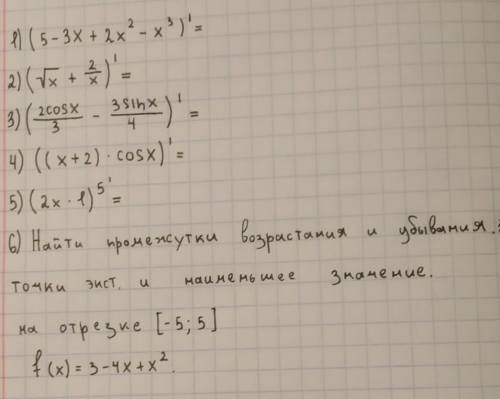 1) (5 - 3x + 2x² - x³)' =
2) (√x + 2/x)' =
3) (2cosx/3 - 3sinx/4)' =
4) ((x+2) · cosx)' =
5) (2x · 1)⁵' =
6) Найти промежутки возрастания и убывания.
точки экст. и наименьшее значение.
на отрезке [-5; 5]
f(x) = 3 - 4x + x².